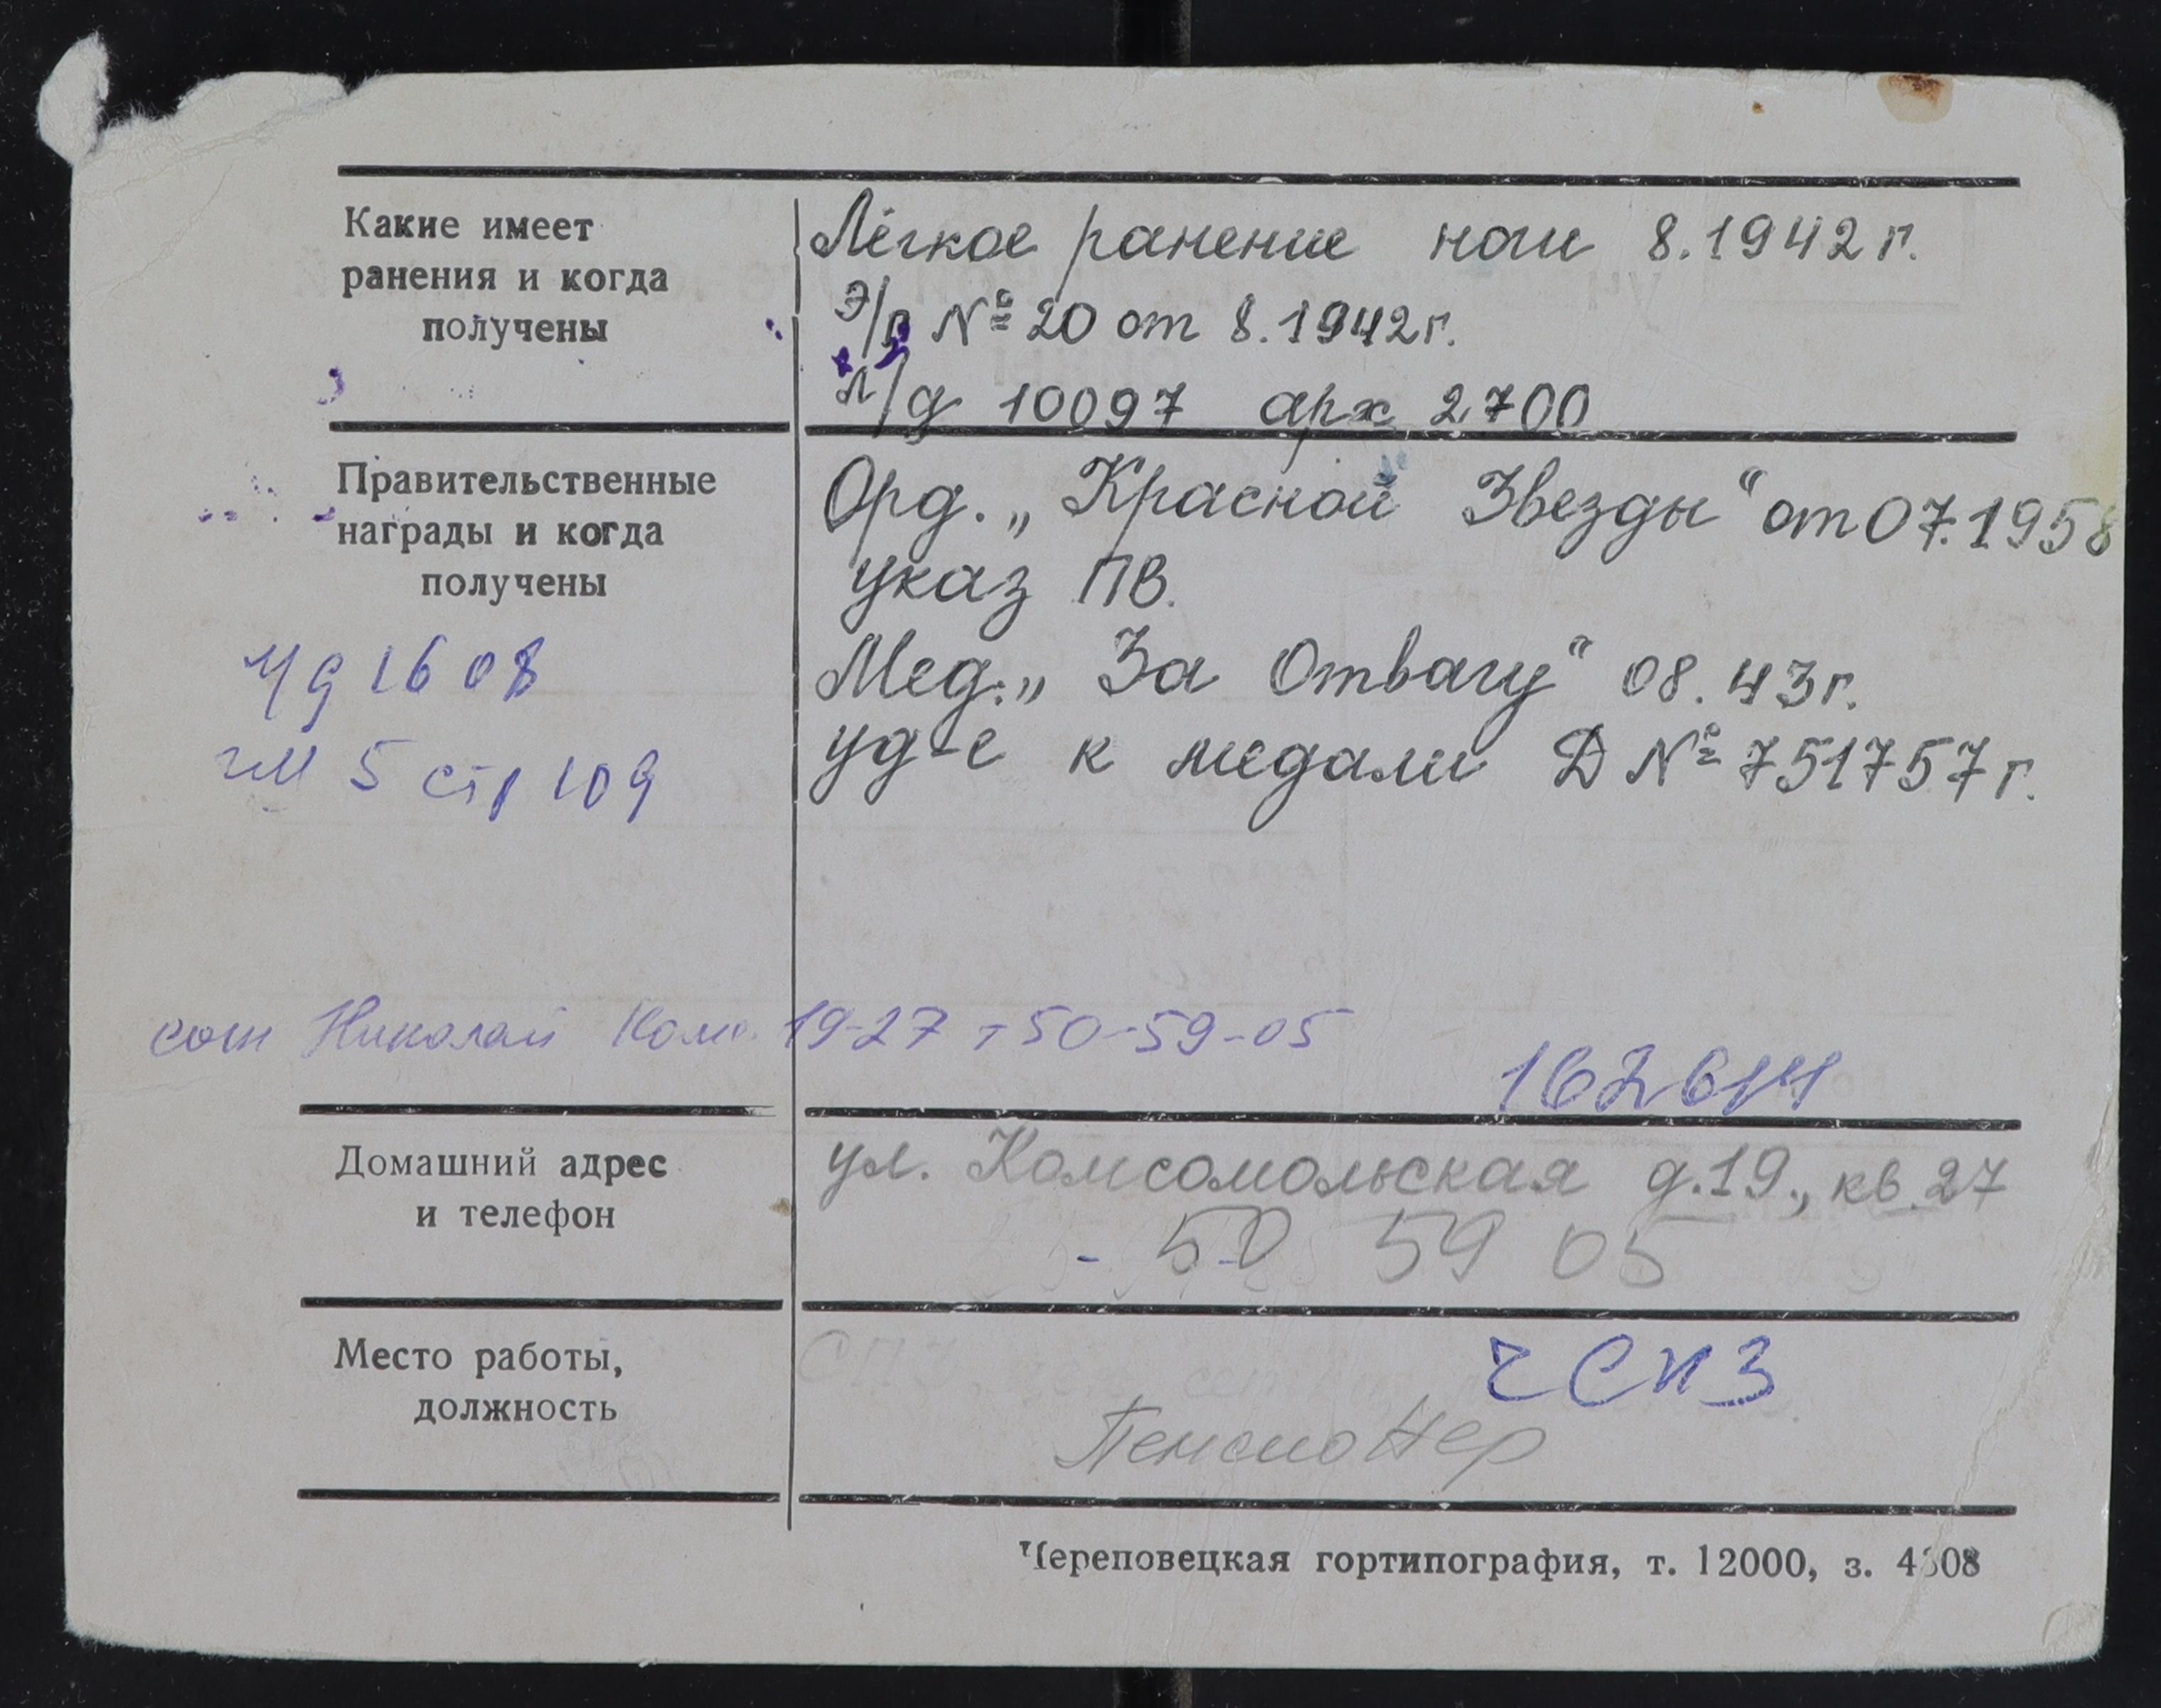 Какие имеет
ранения и когда
получены
Лёгкое ранение ноги 8.1942 г.
Э/г № 20 от 8.1942 г.
л/д 10097 арх 2700
Правительственные
награды и когда
получены
Орд. „Красной Звезды“ от 07.1958
указ ПВ.
Мед. „За Отвагу“ 08.43 г.
уд-е к медали Д № 751757 г.
1608
5 стр 109
сын Николай Комс. 19-27 т 50-59-05
162614
Домашний адрес
и телефон
ул. Комсомольская д.19., кв.27
- 50 59 05
Место работы,
должность
ЧСПЗ
Пенсионер
Череповецкая гортипография, т. 12000, з. 4308